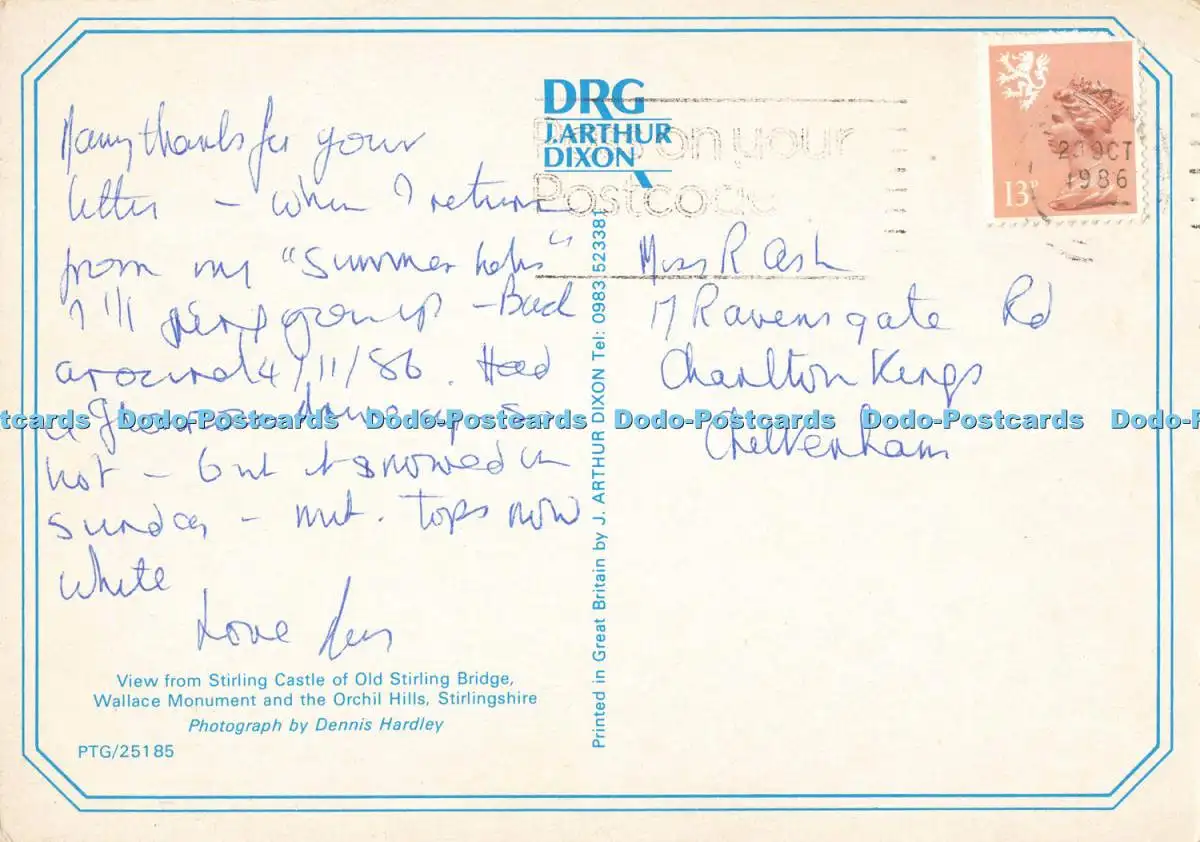 Many thanks for your
letter - when I return
from my "Summer hols"
I'll ring you up - Back
around 4/11/86. Had
a glorious drive up so
hot - but it snowed on
Sunday - mnt. tops now
white
Love
View from Stirling Castle of Old Stirling Bridge,
Wallace Monument and the Orchil Hills, Stirlingshire
Photograph by Dennis Hardley
PTG/25185
DRG
J.ARTHUR
DIXON
Printed in Great Britain by J. ARTHUR DIXON Tel: 0983 523381
on your
Postcode
13P
OCT
1986
Miss R Ash
17 Ravensgate Rd
Charlton Kings
Cheltenham
Dodo-Postcards Dodo-Postcards Dodo-Postcards Dodo-Postcards Dodo-Postcards